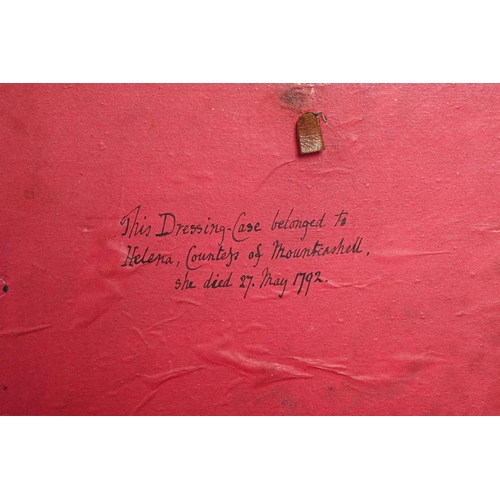 This Dressing-Case belonged to
Helena, Countess of Mountcashell,
she died 27. May 1792.